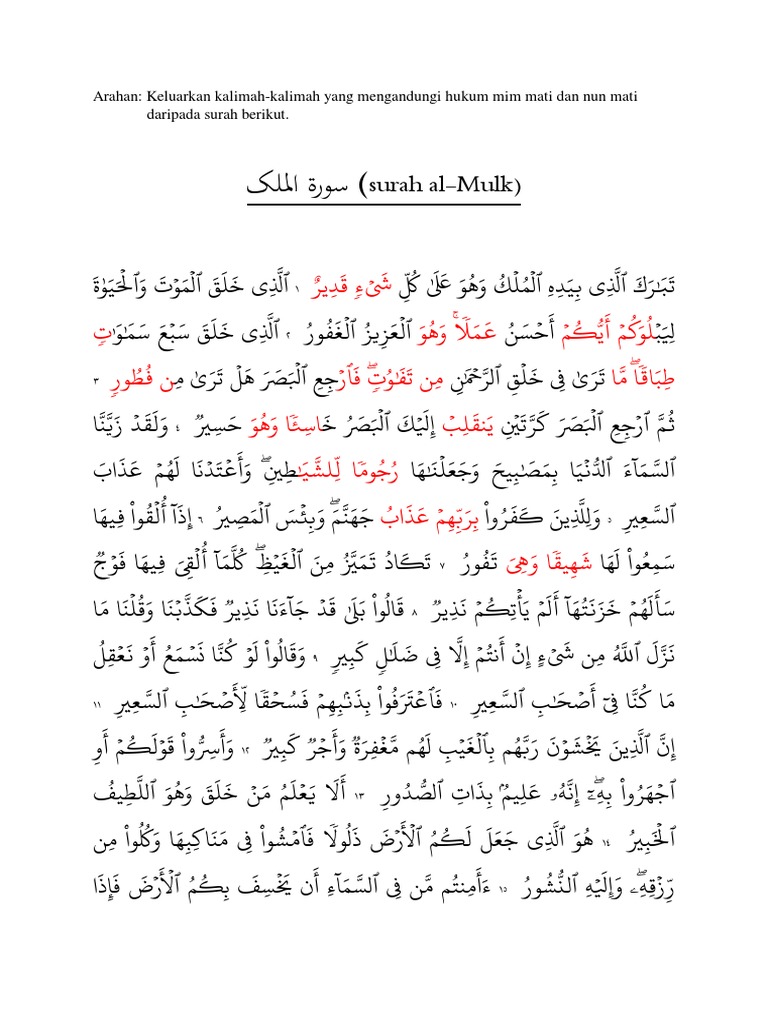 Arahan: Keluarkan kalimah-kalimah yang mengandungi hukum mim mati dan nun mati
daripada surah berikut.
سورة الملك (surah al–Mulk)
تَبَـٰرَكَ ٱلَّذِى بِيَدِهِ ٱلْمُلْكُ وَهُوَ عَلَىٰ كُلِّ شَىْءٍ قَدِيرٌ ١ ٱلَّذِى خَلَقَ ٱلْمَوْتَ وَٱلْحَيَوٰةَ
لِيَبْلُوَكُمْ أَيُّكُمْ أَحْسَنُ عَمَلًا ۚ وَهُوَ ٱلْعَزِيزُ ٱلْغَفُورُ ٢ ٱلَّذِى خَلَقَ سَبْعَ سَمَـٰوَٰتٍ
طِبَاقًا ۖ مَّا تَرَىٰ فِى خَلْقِ ٱلرَّحْمَـٰنِ مِن تَفَـٰوُتٍ ۖ فَٱرْجِعِ ٱلْبَصَرَ هَلْ تَرَىٰ مِن فُطُورٍ ٣
ثُمَّ ٱرْجِعِ ٱلْبَصَرَ كَرَّتَيْنِ يَنقَلِبْ إِلَيْكَ ٱلْبَصَرُ خَاسِئًا وَهُوَ حَسِيرٌ ٤ وَلَقَدْ زَيَّنَّا
ٱلسَّمَآءَ ٱلدُّنْيَا بِمَصَـٰبِيحَ وَجَعَلْنَـٰهَا رُجُومًا لِّلشَّيَـٰطِينِ ۖ وَأَعْتَدْنَا لَهُمْ عَذَابَ
ٱلسَّعِيرِ ٥ وَلِلَّذِينَ كَفَرُوا۟ بِرَبِّهِمْ عَذَابُ جَهَنَّمَ ۖ وَبِئْسَ ٱلْمَصِيرُ ٦ إِذَآ أُلْقُوا۟ فِيهَا
سَمِعُوا۟ لَهَا شَهِيقًا وَهِىَ تَفُورُ ٧ تَكَادُ تَمَيَّزُ مِنَ ٱلْغَيْظِ ۖ كُلَّمَآ أُلْقِىَ فِيهَا فَوْجٌ
سَأَلَهُمْ خَزَنَتُهَآ أَلَمْ يَأْتِكُمْ نَذِيرٌ ٨ قَالُوا۟ بَلَىٰ قَدْ جَآءَنَا نَذِيرٌ فَكَذَّبْنَا وَقُلْنَا مَا
نَزَّلَ ٱللَّهُ مِن شَىْءٍ إِنْ أَنتُمْ إِلَّا فِى ضَلَـٰلٍ كَبِيرٍ ٩ وَقَالُوا۟ لَوْ كُنَّا نَسْمَعُ أَوْ نَعْقِلُ
مَا كُنَّا فِىٓ أَصْحَـٰبِ ٱلسَّعِيرِ ١٠ فَٱعْتَرَفُوا۟ بِذَنۢبِهِمْ فَسُحْقًا لِّأَصْحَـٰبِ ٱلسَّعِيرِ ١١
إِنَّ ٱلَّذِينَ يَخْشَوْنَ رَبَّهُم بِٱلْغَيْبِ لَهُم مَّغْفِرَةٌ وَأَجْرٌ كَبِيرٌ ١٢ وَأَسِرُّوا۟ قَوْلَكُمْ أَوِ
ٱجْهَرُوا۟ بِهِۦٓ ۖ إِنَّهُۥ عَلِيمٌۢ بِذَاتِ ٱلصُّدُورِ ١٣ أَلَا يَعْلَمُ مَنْ خَلَقَ وَهُوَ ٱللَّطِيفُ
ٱلْخَبِيرُ ١٤ هُوَ ٱلَّذِى جَعَلَ لَكُمُ ٱلْأَرْضَ ذَلُولًا فَٱمْشُوا۟ فِى مَنَاكِبِهَا وَكُلُوا۟ مِن
رِّزْقِهِۦ ۖ وَإِلَيْهِ ٱلنُّشُورُ ١٥ ءَأَمِنتُم مَّن فِى ٱلسَّمَآءِ أَن يَخْسِفَ بِكُمُ ٱلْأَرْضَ فَإِذَا